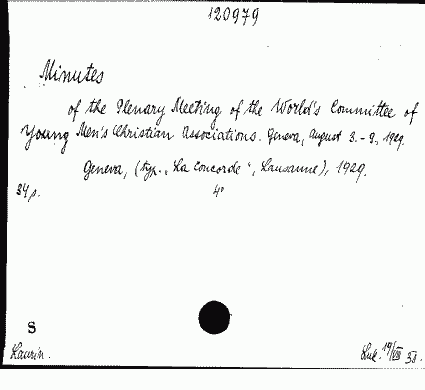 120979
Minutes
of the Plenary Meeting of the World's Committee of
Young Men's Christian Associations. Geneva, august 3.-9., 1929.
Geneva, (typ. „La Concorde", Lausanne), 1929.
34 p. 4°
S
Laurin. 19/VIII 31.